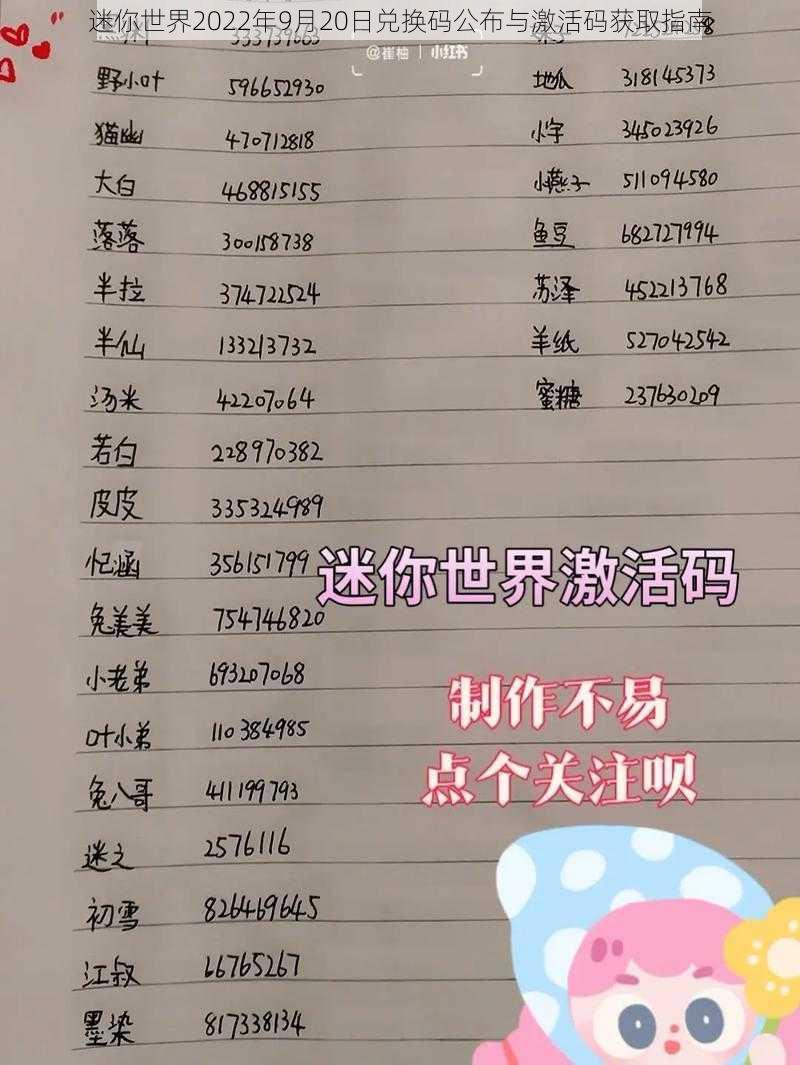 迷你世界2022年9月20日兑换码公布与激活码获取指南
@崔柚 | 小红书
野小叶 596652930
地瓜 318145373
猫幽 470712818
小字 345023926
大白 468815155
小燕子 511094580
落落 300158738
鱼豆 682727994
半拉 374722524
苏泽 452213768
半仙 133213732
羊纸 527042542
汤米 42207064
蜜糖 237630209
若白 228970382
皮皮 335324989
忆涵 356151799
迷你世界激活码
兔美美 754746820
小老弟 693207068
制作不易
叶小弟 110384985
点个关注呗
兔八哥 411199793
迷之 2576116
初雪 826469645
江叔 66765267
墨染 817338134